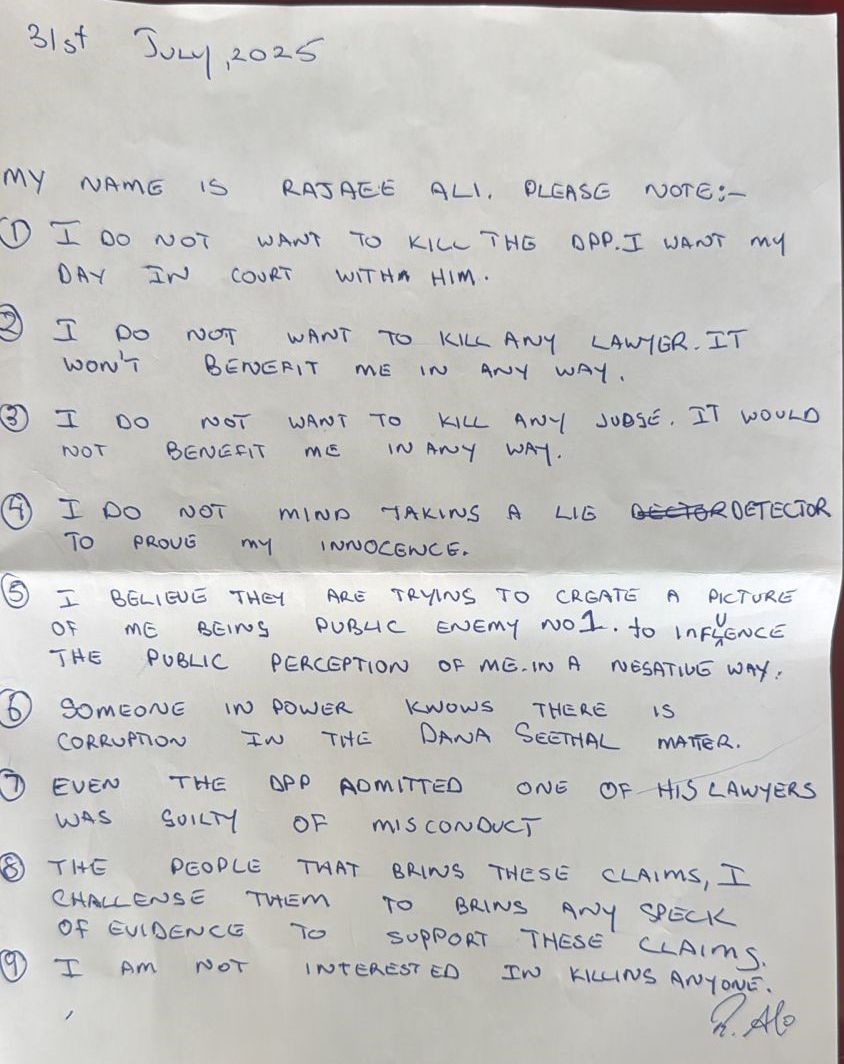 31st July, 2025
MY NAME IS RAJAEE ALI. PLEASE NOTE:-
① I DO NOT WANT TO KILL THE DPP. I WANT MY
DAY IN COURT WITH HIM.
② I DO NOT WANT TO KILL ANY LAWYER. IT
WON'T BENEFIT ME IN ANY WAY.
③ I DO NOT WANT TO KILL ANY JUDGE. IT WOULD
NOT BENEFIT ME IN ANY WAY.
④ I DO NOT MIND TAKING A LIE DECTOR DETECTOR
TO PROVE MY INNOCENCE.
⑤ I BELIEVE THEY ARE TRYING TO CREATE A PICTURE
OF ME BEING PUBLIC ENEMY NO 1. to INFLUENCE
THE PUBLIC PERCEPTION OF ME. IN A NEGATIVE WAY.
⑥ SOMEONE IN POWER KNOWS THERE IS
CORRUPTION IN THE DANA SEETHAL MATTER.
⑦ EVEN THE DPP ADMITTED ONE OF HIS LAWYERS
WAS GUILTY OF MISCONDUCT
⑧ THE PEOPLE THAT BRING THESE CLAIMS, I
CHALLENGE THEM TO BRING ANY SPECK
OF EVIDENCE TO SUPPORT THESE CLAIMS.
⑨ I AM NOT INTERESTED IN KILLING ANYONE.